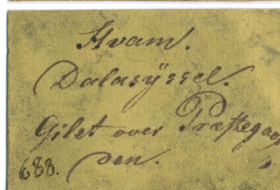 Hvam.
Dalasÿssel.
Gilet over Præstegaar
den.
688.